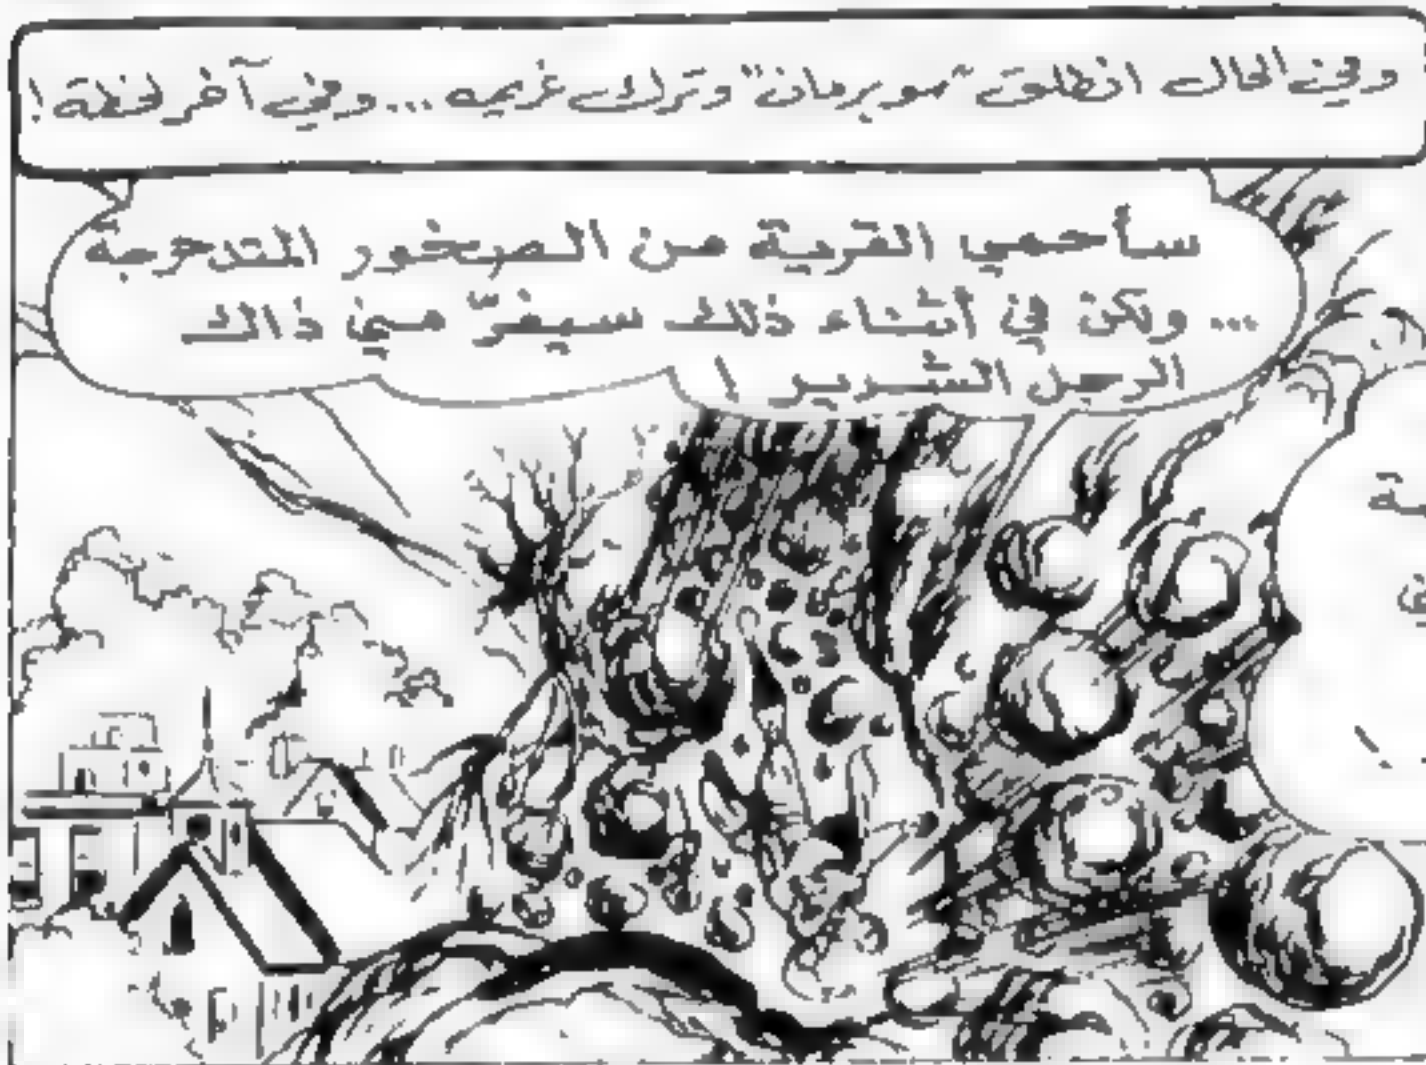 وفي الحال انطلق "سوبرمان" وترك غريمه ... وفي آخر لحظة !
سأحمي القرية من الصخور المتدحرجة
... ولكن في أثناء ذلك سيفرّ مني ذاك
الرجل الشرير !